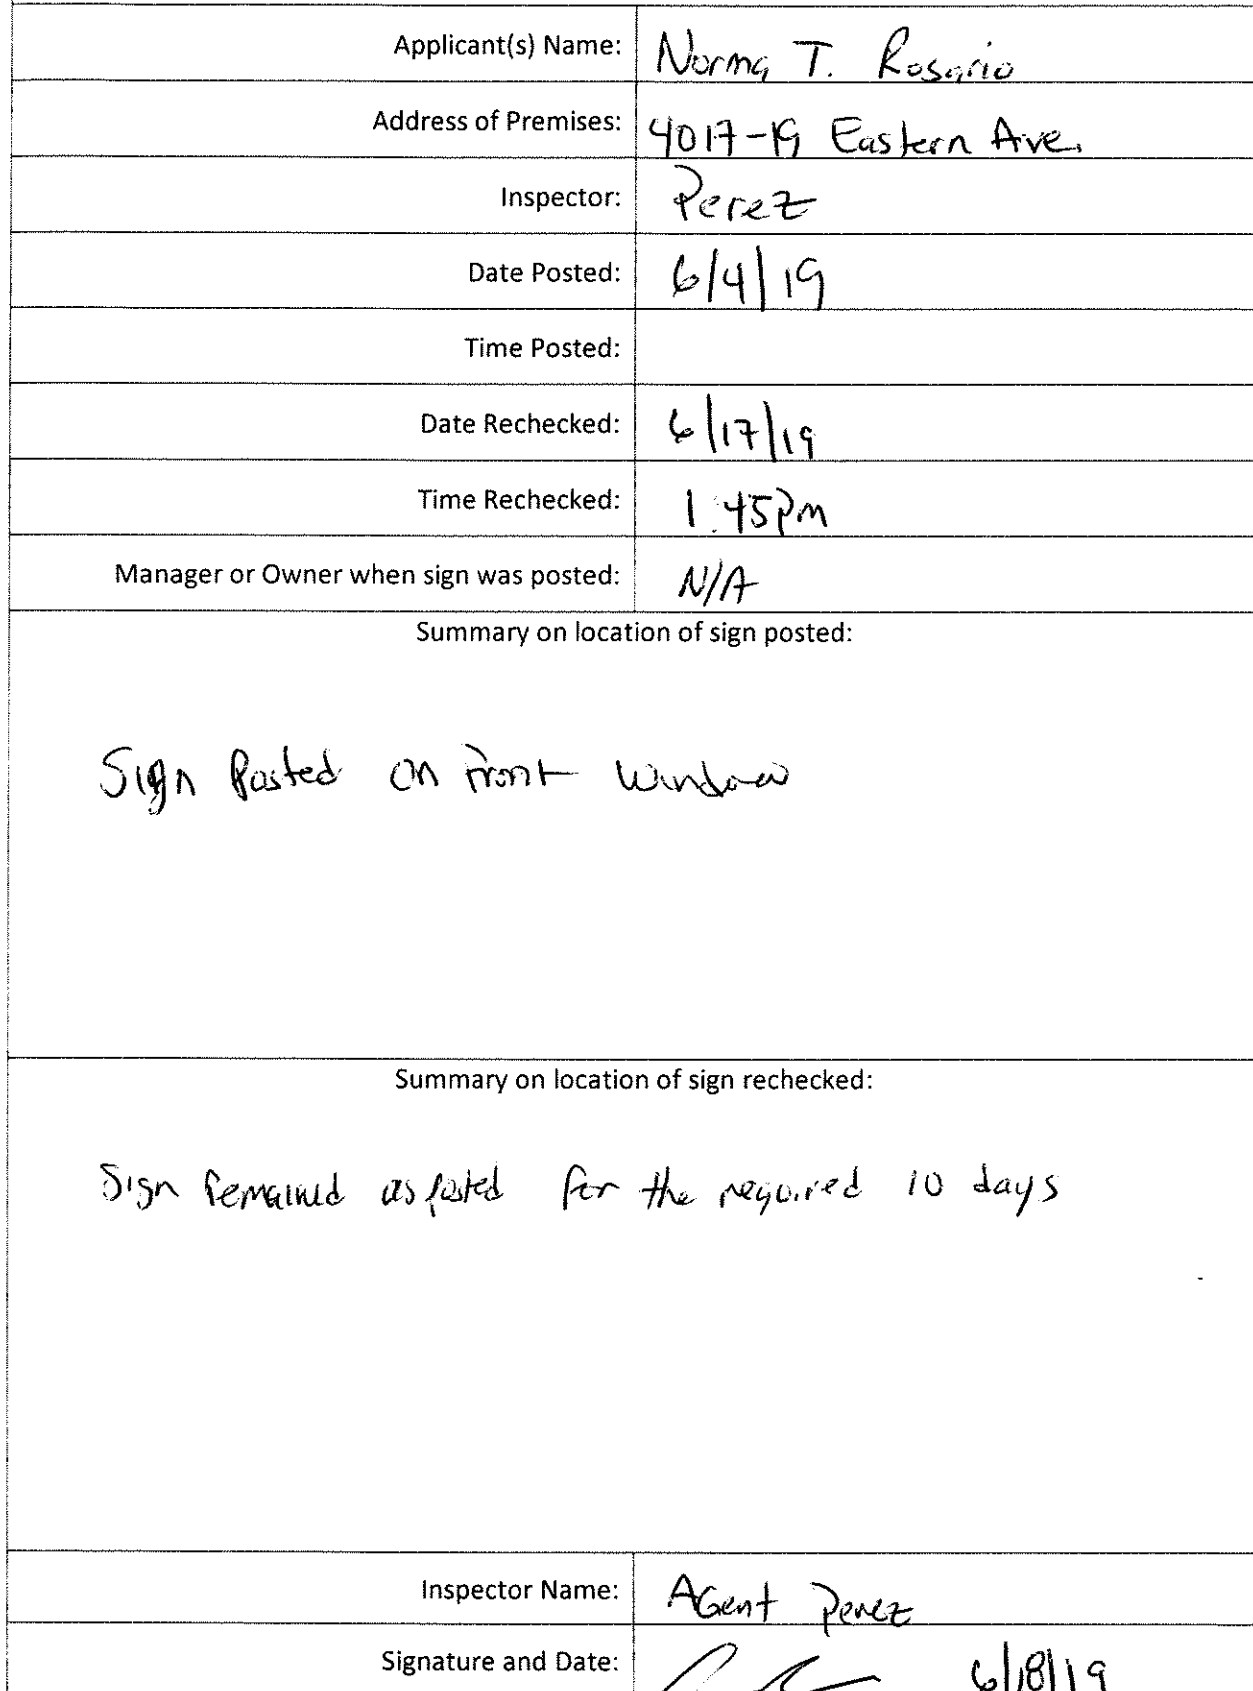 Applicant(s) Name: Norma T. Rosario
Address of Premises: 4017-19 Eastern Ave.
Inspector: Perez
Date Posted: 6/4/19
Time Posted:
Date Rechecked: 6/17/19
Time Rechecked: 1:45pm
Manager or Owner when sign was posted: N/A
Summary on location of sign posted:
Sign Posted on Front Window
Summary on location of sign rechecked:
Sign Remained as posted for the required 10 days
Inspector Name: AGent Perez
Signature and Date: 6/18/19